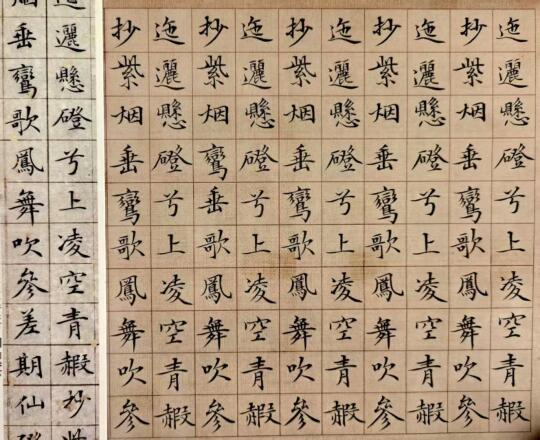 迤邐懸磴兮上凌空青赮
抄紫烟垂鸞歌鳳舞吹參
迤邐懸磴兮上凌空青赮
抄紫烟垂鸞歌鳳舞吹參
迤邐懸磴兮上凌空青赮
抄紫烟垂鸞歌鳳舞吹參
迤邐懸磴兮上凌空青赮
抄紫烟鸞垂歌鳳舞吹參
迤邐懸磴兮上凌空青赮
抄紫烟垂鸞歌鳳舞吹參
邐懸磴兮上凌空青赮抄
烟垂鸞歌鳳舞吹參差期仙